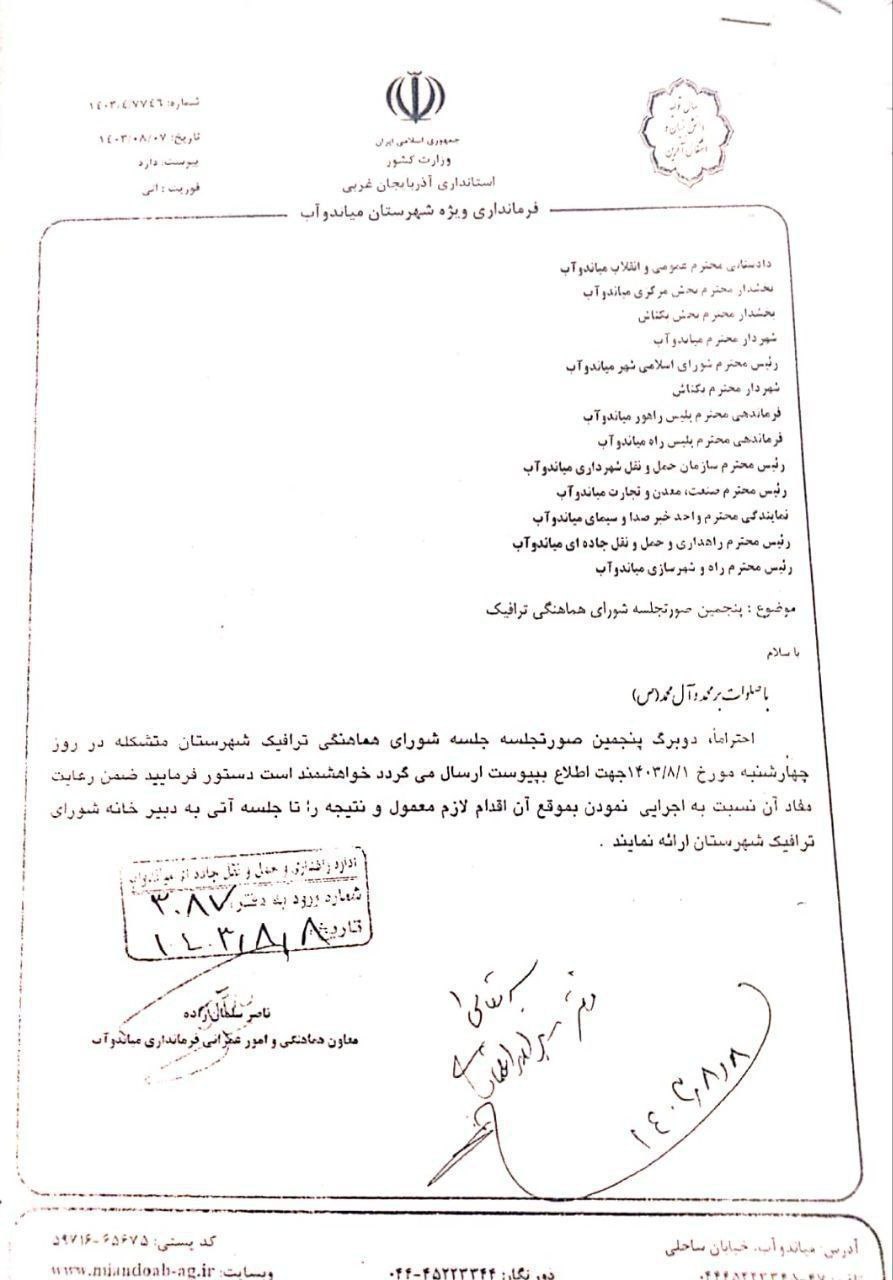 شماره: ۱۴۰۳/۴/۷۷۴۶
تاریخ: ۱۴۰۳/۰۸/۰۷
پیوست: دارد
فوریت: آنی
جمهوری اسلامی ایران
وزارت کشور
استانداری آذربایجان غربی
فرمانداری ویژه شهرستان میاندوآب
دادستانی محترم عمومی و انقلاب میاندوآب
بخشدار محترم بخش مرکزی میاندوآب
بخشدار محترم بخش بکتاش
شهردار محترم میاندوآب
رئیس محترم شورای اسلامی شهر میاندوآب
شهردار محترم بکتاش
فرماندهی محترم پلیس راهور میاندوآب
فرماندهی محترم پلیس راه میاندوآب
رئیس محترم سازمان حمل و نقل شهرداری میاندوآب
رئیس محترم صنعت، معدن و تجارت میاندوآب
نمایندگی محترم واحد خبر صدا و سیمای میاندوآب
رئیس محترم راهداری و حمل و نقل جاده ای میاندوآب
رئیس محترم راه و شهرسازی میاندوآب
موضوع : پنجمین صورتجلسه شورای هماهنگی ترافیک
با سلام
با صلوات بر محمد و آل محمد (ص)
احتراماً، دوبرگ پنجمین صورتجلسه جلسه شورای هماهنگی ترافیک شهرستان متشکله در روز
چهارشنبه مورخ ۱۴۰۳/۸/۱جهت اطلاع بپیوست ارسال می گردد خواهشمند است دستور فرمایید ضمن رعایت
مفاد آن نسبت به اجرایی نمودن بموقع آن اقدام لازم معمول و نتیجه را تا جلسه آتی به دبیر خانه شورای
ترافیک شهرستان ارائه نمایند .
اداره راهداری و حمل و نقل جاده ای میاندوآب
شماره ورود به دفتر: ۳۰۸۷
تاریخ: ۱۴۰۳/۸/۸
ناصر سلمان زاده
معاون هماهنگی و امور عمرانی فرمانداری میاندوآب
۱۴۰۳/۸/۸
آدرس: میاندوآب، خیابان ساحلی
کد پستی: ۵۹۷۱۶-۶۵۶۷۵
دور نگار: ۰۴۴-۴۵۲۲۳۳۴۴
وبسایت: www.miandoab-ag.ir